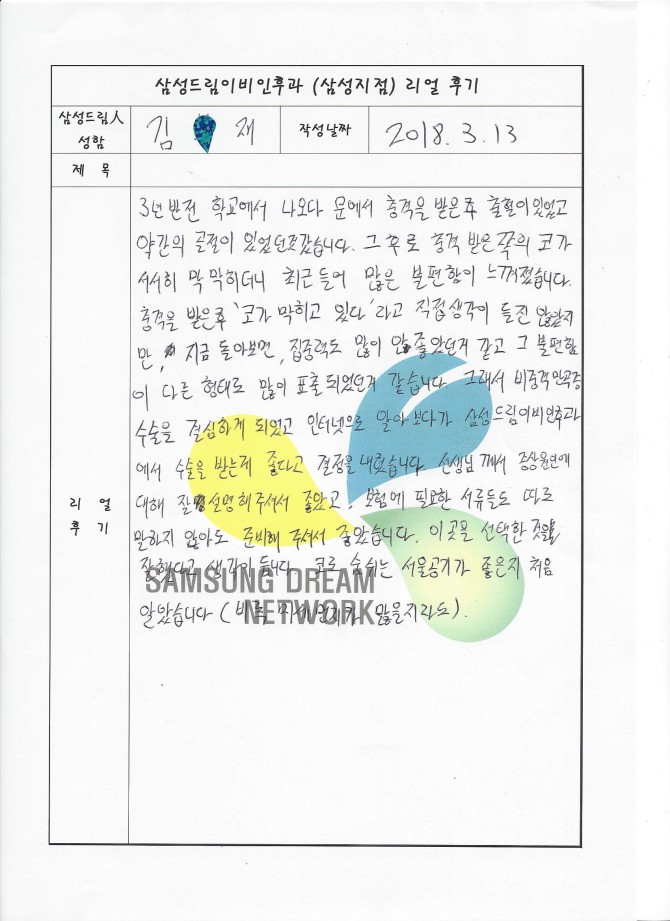 삼성드림이비인후과 (삼성지점) 리얼 후기
삼성드림人 성함
김 재
작성날짜
2018. 3. 13
제 목
리 얼 후 기
3년 반전 학교에서 나오다 문에서 충격을 받은후 출혈이 있었고
약간의 골절이 있었던것같습니다. 그 후로 충격 받은쪽의 코가
서서히 막 막히더니 최근 들어 많은 불편함이 느껴졌습니다.
충격을 받은후 '코가 막히고 있다'라고 직접생각이 들진 않았지
만, 지금 돌아보면, 집중력도 많이 안좋았던거 같고 그 불편함
이 다른 형태로 많이 표출되었던거 같습니다. 그래서 비중격만곡증
수술을 결심하게 되었고 인터넷으로 알아보다가 삼성드림이비인후과
에서 수술을 받는게 좋다고 결정을 내렸습니다. 선생님께서 증상원인에
대해 잘 설명해주셔서 좋았고, 보험에 필요한 서류들도 따로
말하지 않아도 준비해 주셔서 좋았습니다. 이곳을 선택한 것을
잘했다고 생각이 듭니다. 코로 숨쉬는 서울공기가 좋은지 처음
알았습니다 (비록 미세먼지가 많을지라도).
SAMSUNG DREAM
NETWORK